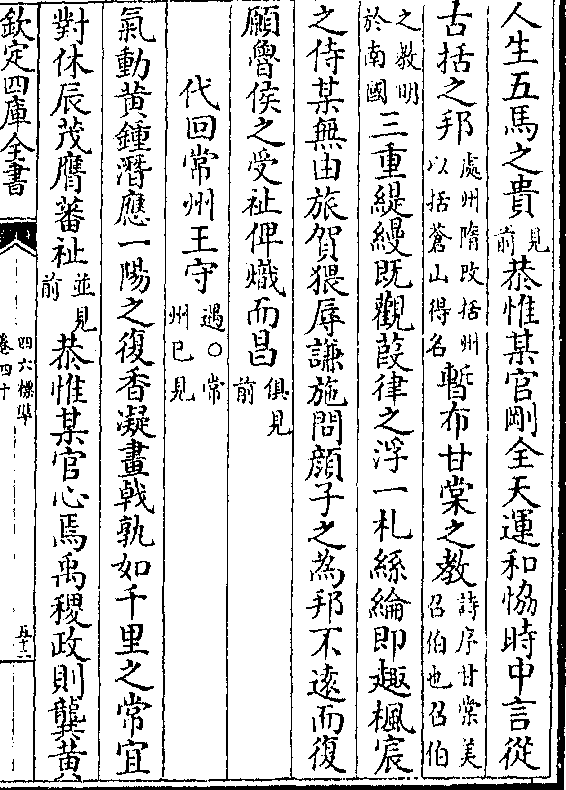 人生五馬之貴見前恭惟某官剛全天運和恊時中言從
古括之邦處州隋改括州以括蒼山得名暫布甘棠之教詩序甘棠美召伯也召伯
之教明於南國三重緹縵既觀葭律之浮一札絲綸即趣楓宸
之侍某無由旅賀猥辱謙施問顔子之為邦不遠而復
願魯侯之受祉俾熾而昌俱見前
代回常州王守遇○常州已見
氣動黄鍾潛應一陽之復香凝畫戟孰如千里之常宜
對休辰茂膺蕃祉並見前恭惟某官心焉禹稷政則龔黄
欽定四庫全書
四六標準
卷四十
五十二